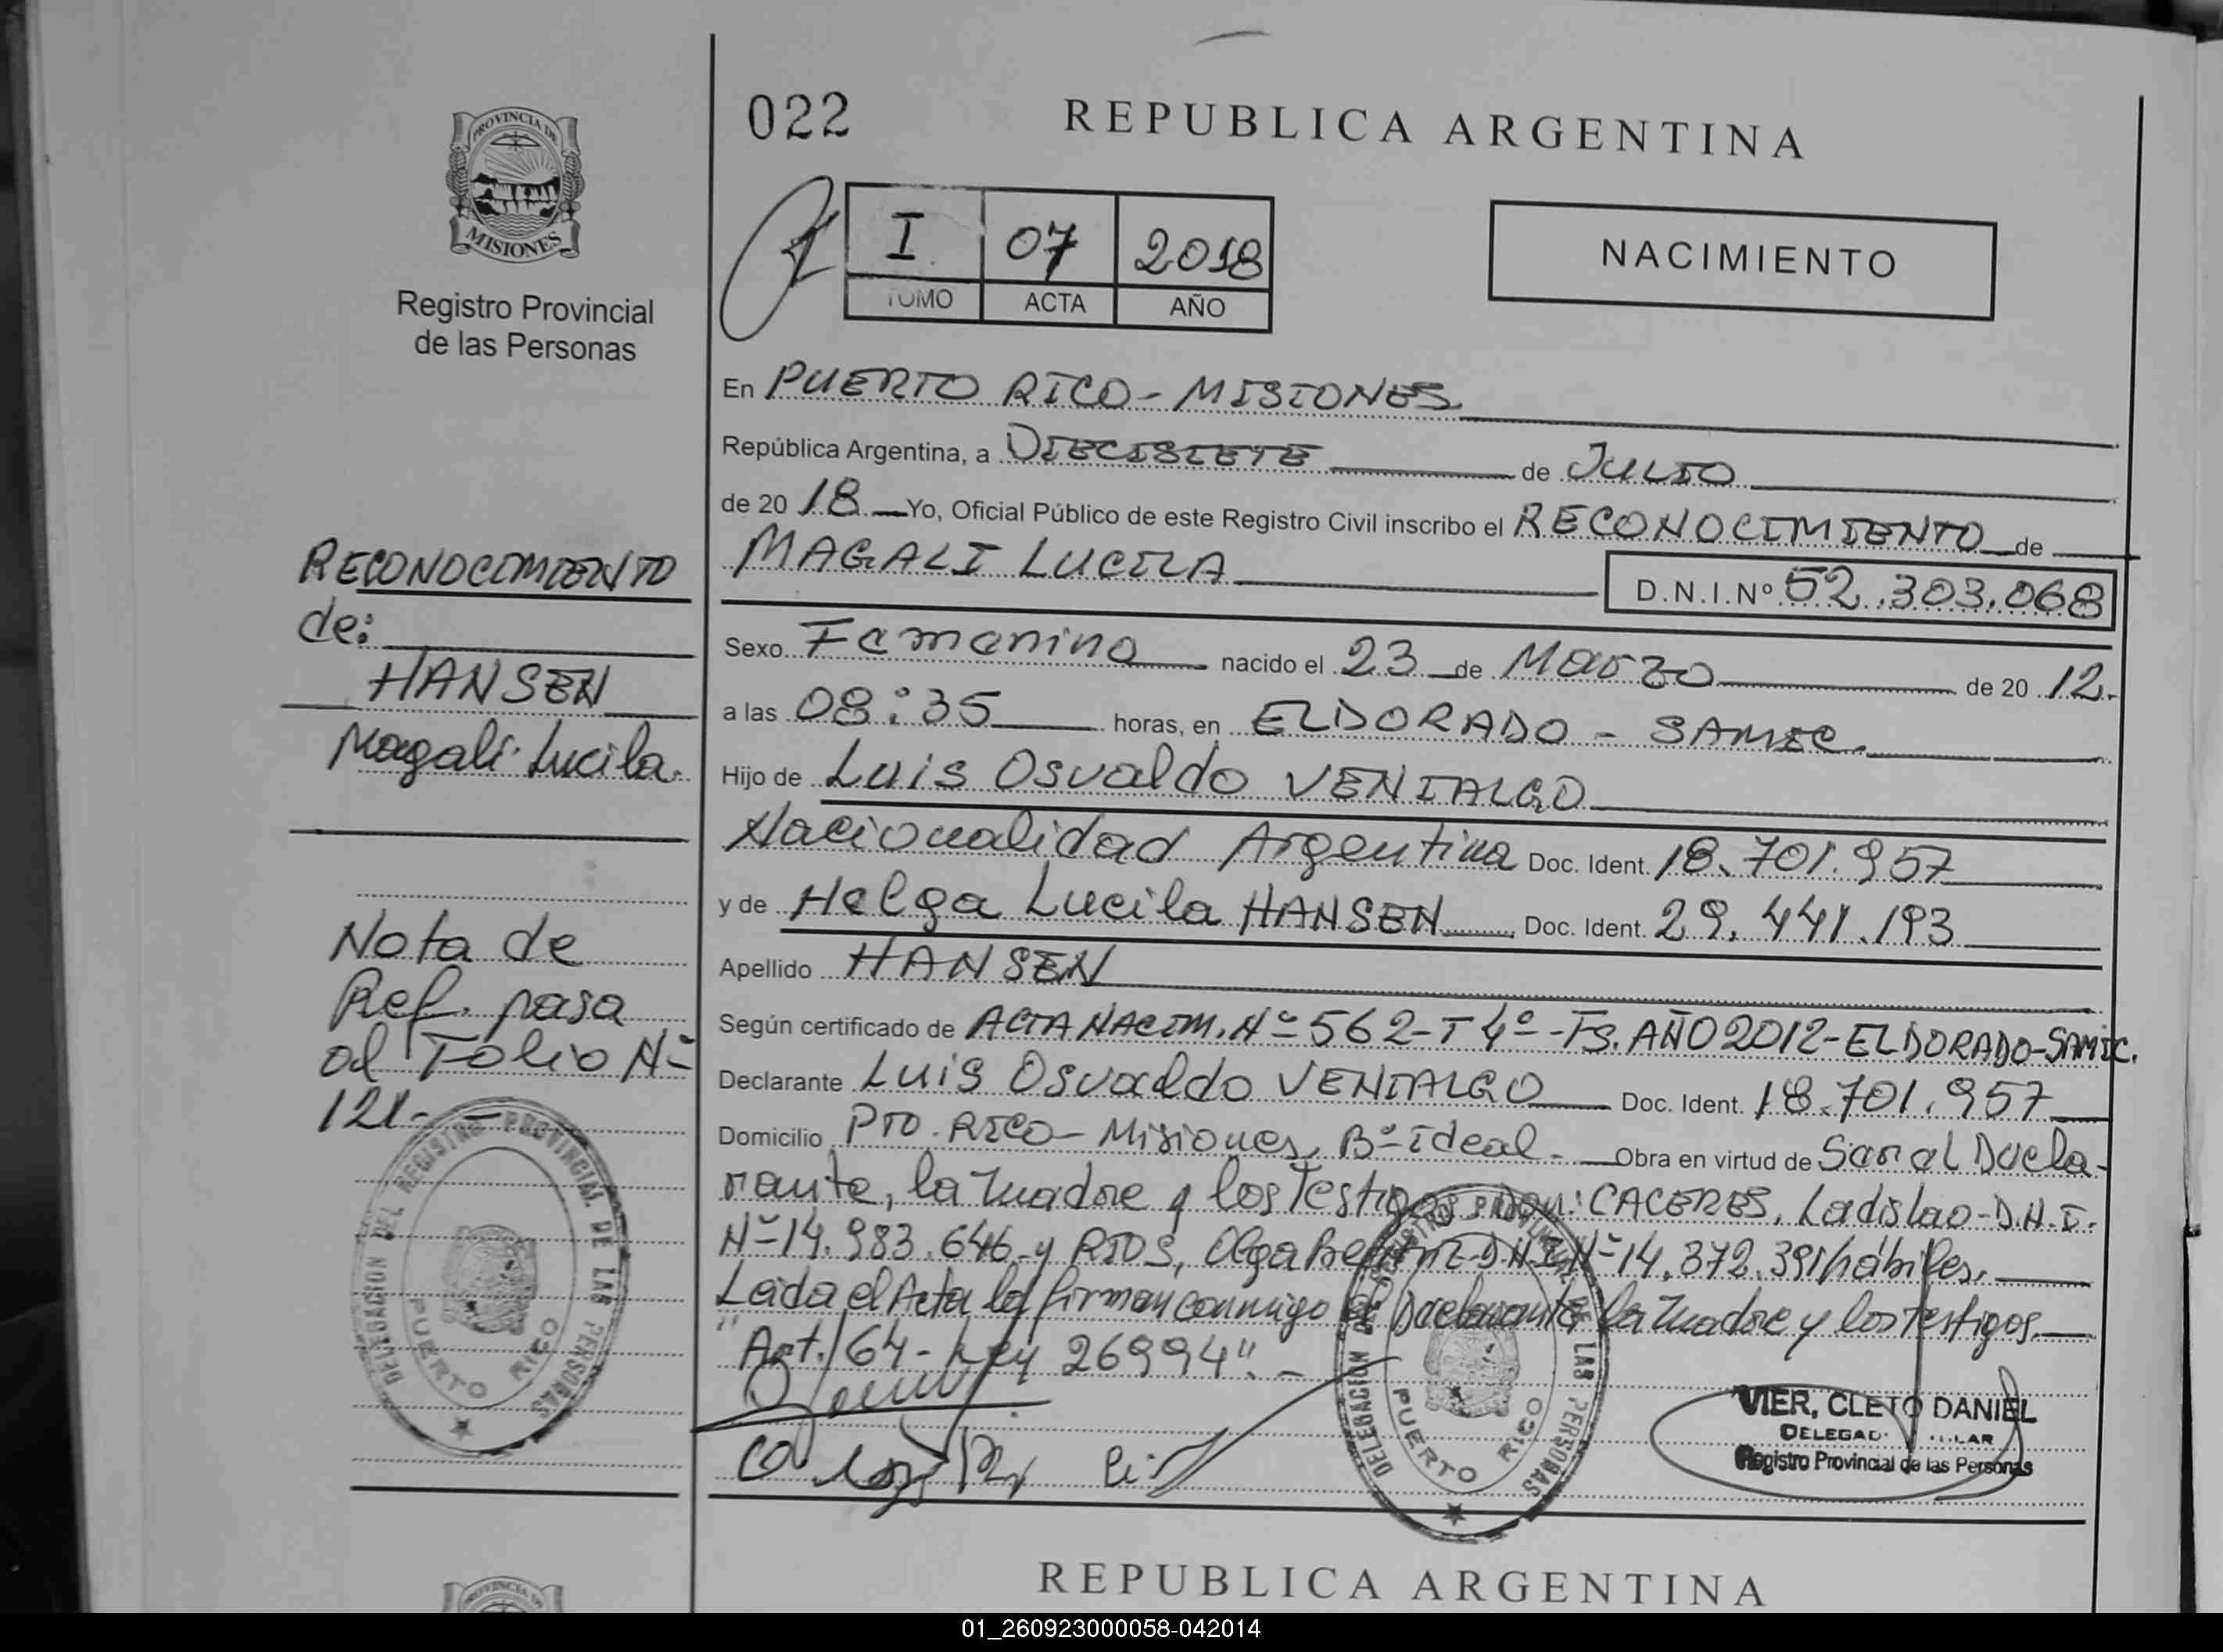 022
REPUBLICA ARGENTINA
PROVINCIA DE
MISIONES
Registro Provincial
de las Personas
I 07 2018
TOMO ACTA AÑO
NACIMIENTO
En PUERTO RICO - MISIONES
República Argentina, a DIECISIETE de JULIO
de 20 18 Yo, Oficial Público de este Registro Civil inscribo el RECONOCIMIENTO de
MAGALI LUCILA
D.N.I.Nº 52.303.068
Sexo Femenino nacido el 23 de Marzo de 20 12.
a las 08:35 horas, en ELDORADO - SAMIC.
Hijo de Luis Osvaldo VENIALGO
Nacionalidad Argentina Doc. Ident. 18.701.957
y de Helga Lucila HANSEN Doc. Ident. 29.441.193
Apellido HANSEN
Según certificado de ACTA NACIM. Nº 562-T 4º-Fs. AÑO 2012-ELDORADO-SAMIC.
Declarante Luis Osvaldo VENIALGO Doc. Ident. 18.701.957
Domicilio PTO. RICO - Misiones, Bº Ideal. Obra en virtud de Ser el Decla-
rante, la madre y los Testigos CACERES, Ladislao-D.N.I.
Nº 14.983.646 y RIOS, Olga D.N.I Nº 14.372.391 hábiles.
Leida el Acta la firman conmigo el Declarante la madre y los Testigos.
"Art. 64 - Ley 26994".-
VIER, CLETO DANIEL
Registro Provincial de las Personas
RECONOCIMIENTO
de:
HANSEN
Magali Lucila.
Nota de
Ref. pasa
al Folio Nº
121-
DELEGACION DEL REGISTRO PROVINCIAL DE LAS PERSONAS
PUERTO RICO
DELEGACION DEL REGISTRO PROVINCIAL DE LAS PERSONAS
PUERTO RICO
PROVINCIA DE
REPUBLICA ARGENTINA
01_260923000058-042014